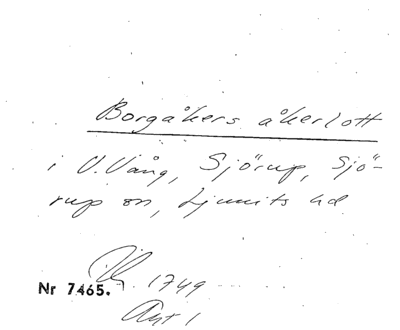 Borgåkers åkerlott
i V. Vång, Sjörup, Sjö-
rup sn, Ljunits hd
1749
Nr 7465.
Akt 1